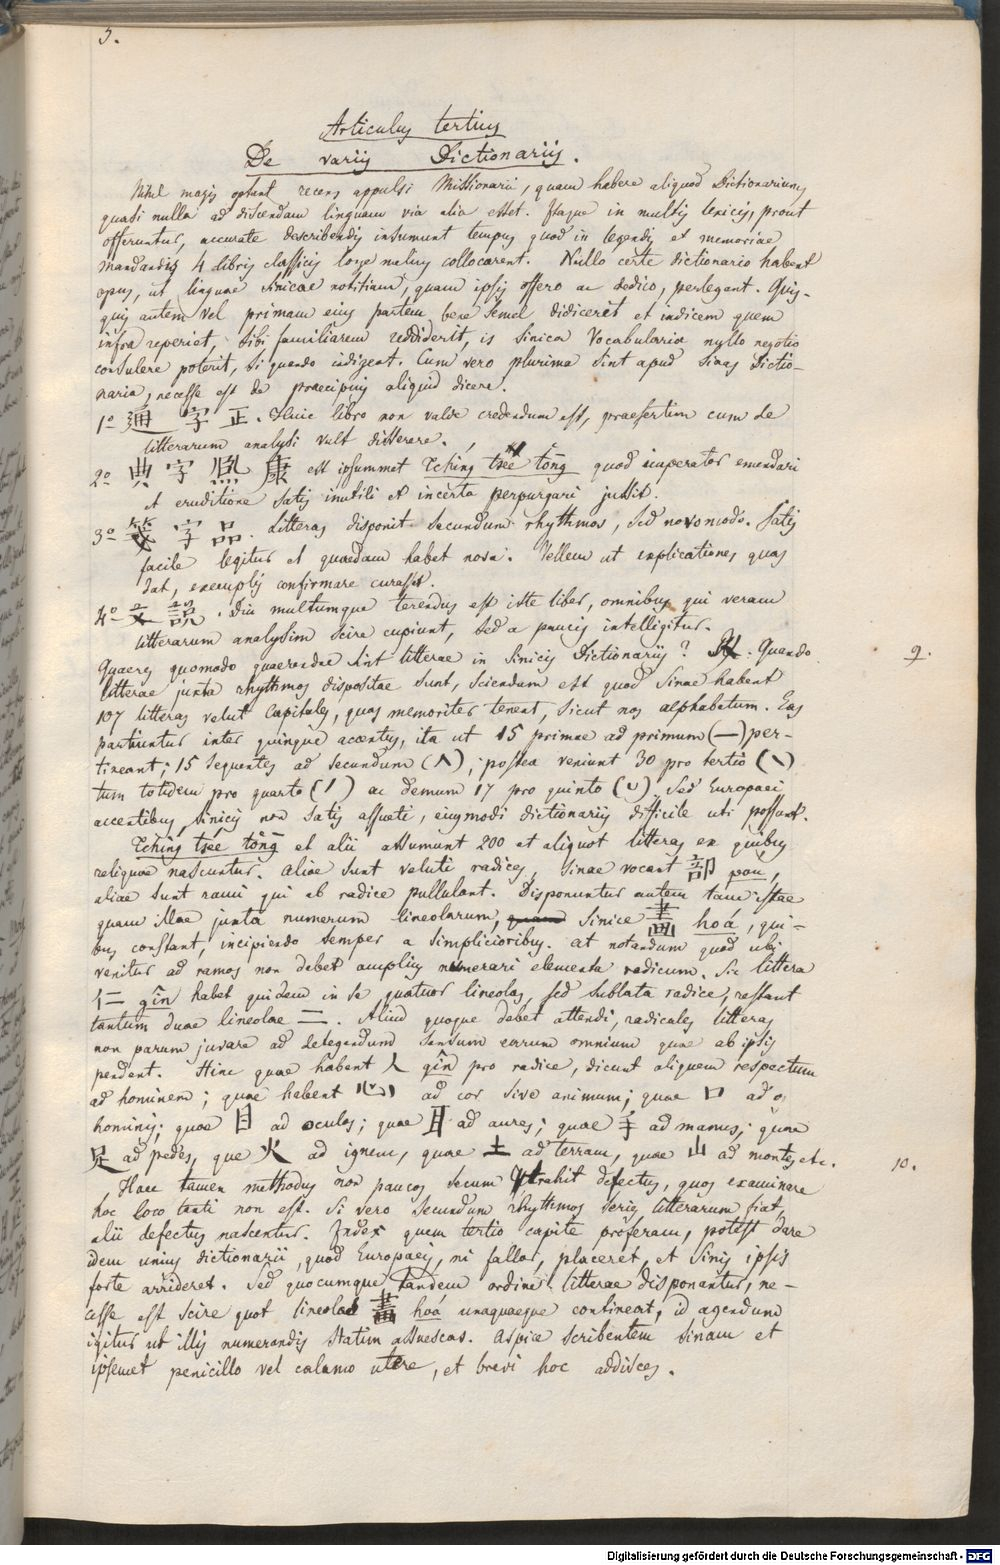 5.
Articulus tertius
De variis Dictionariis.
Nihil magis optant recens appulsi Missionarii, quam habere aliquod Dictionarium,
quasi nulla ad discendam linguam via alia esset. Itaque in multis lexicis, prout
offeruntur, accurate describendis insumunt tempus quod in legendis et memoriae
mandandis 4 libris classicis longe melius collocarent. Nullo certe dictionario habent
opus, ut linguae sinicae notitiam, quam ipsis offero ac dedico, perlegant. Quis-
quis autem vel primam eius partem bene semel didicerit et indicem quem
infra reperiet, sibi familiarem reddiderit, is sinica Vocabularia nullo negotio
consulere poterit, si quando indigeat. Cum vero plurima sint apud Sinas Dictio-
naria, necesse est de praecipuis aliquid dicere.
1º 通 字 正. Huic libro non valde credendum est, praesertim cum de
litterarum analysi vult disserere.
2º 典 字 熙 康 est ipsummet Tching tsée tōng quod imperator emendari
et eruditione satis inutili et incerta perpurgari jussit.
3º 箋 字 品. Litteras disponit secundum rhythmos, sed novo modo. Satis
facile legitur et quaedam habet nova. Vellem ut explicationes quas
dat, exemplis confirmare curasset.
4º 文 說. Diu multumque terendus est iste liber, omnibus qui veram
litterarum analysim scire cupiunt, sed a paucis intelligitur.
Quaeres quomodo quaerendae sint litterae in sinicis Dictionariis? R. Quando
9.
litterae juxta rhythmos dispositae sunt, sciendum est quod Sinae habent
107 litteras velut Capitales, quas memoriter tenent, sicut nos alphabetum. Eas
partiuntur inter quinque accentus, ita ut 15 primae ad primum (—) per-
tineant; 15 sequentes ad secundum (∧), postea veniunt 30 pro tertio (\)
tum totidem pro quarto (/) ac demum 17 pro quinto (∪). Sed Europaei
accentibus sinicis non satis assueti, eiusmodi dictionariis difficile uti possunt.
Tching tsée tōng et alii assumunt 200 et aliquot litteras ex quibus
reliquae nascuntur. Aliae sunt veluti radices, Sinae vocant 部 pou,
aliae sunt rami qui ab radice pullulant. Disponuntur autem tam istae
quam illae juxta numerum lineolarum, quam Sinice 畫 hoá, qui-
bus constant, incipiendo semper a simplicioribus. at notandum quod ubi
venitur ad ramos non debet amplius numerari elementa radicum. Sic littera
仁 gîn habet quidem in se quatuor lineolas, sed sublata radice, restant
tantum duae lineolae 二. Aliud quoque debet attendi, radicales litteras
non parum juvare ad detegendum sensum earum omnium quae ab ipsis
pendent. Hinc quae habent 人 gîn pro radice, dicunt aliquem respectum
ad hominem; quae habent 心 ad cor sive animum; quae 口 ad os
hominis; quae 目 ad oculos; quae 耳 ad aures; quae 手 ad manus; quae
足 ad pedes, quae 火 ad ignem, quae 土 ad terram, quae 山 ad montes etc.
10.
Haec tamen methodus non paucos secum trahit defectus, quos examinare
hoc loco tanti non est. Si vero secundum rhythmos series litterarum fiat,
alii defectus nascentur. Index quem tertio capite proferam, potest dare
ideam unius dictionarii, quod Europaeis, ni fallor, placeret, et Sinis ipsis
forte arrideret. Sed quocumque tandem ordine litterae disponantur, ne-
cesse est scire quot lineolas 畫 hoá unaquaeque contineat, id agendum
igitur ut illis numerandis statim assuescas. Aspice scribentem Sinam et
ipsemet penicillo vel calamo utere, et brevi hoc addisces.
Digitalisierung gefördert durch die Deutsche Forschungsgemeinschaft - DFG